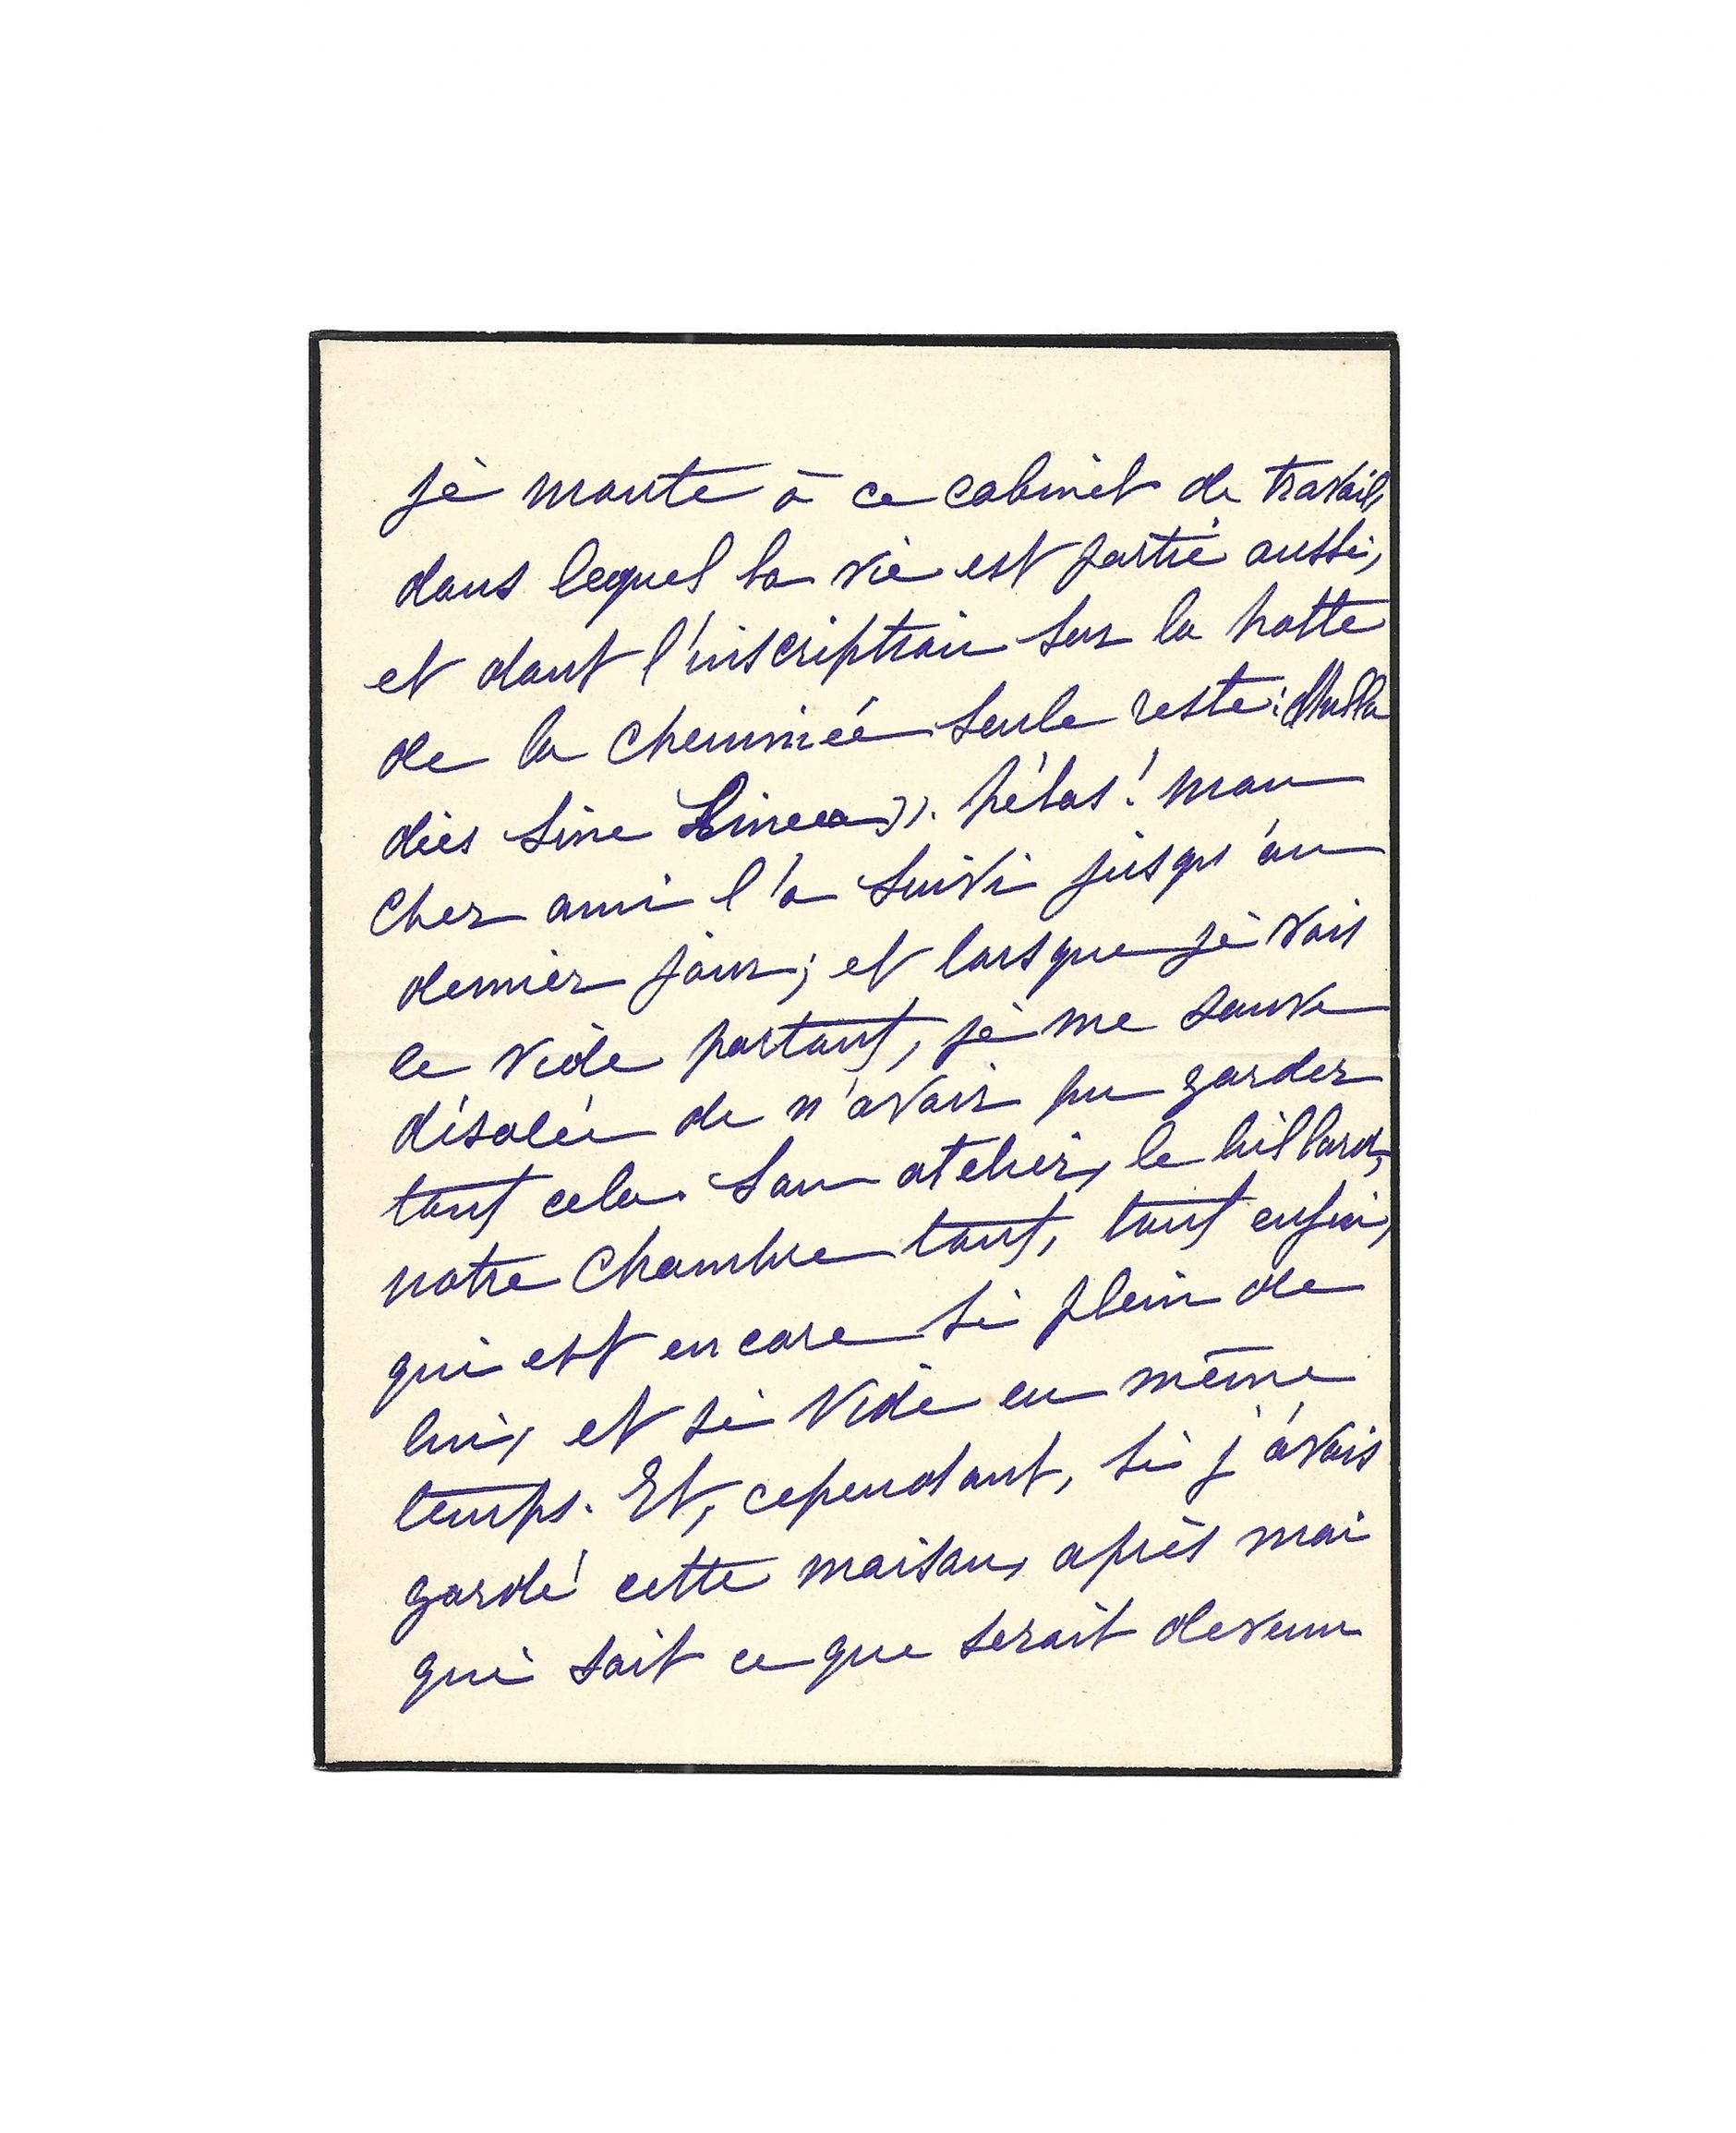 je monte à ce cabinet de travail,
dans lequel la vie est partie aussi,
et dont l'inscription sur la hotte
de la cheminée seule reste: Nulla
dies sine Linea ». hélas! mon
cher ami l'a suivi jusqu'au
dernier jour; et lorsque je vois
le vide partout, je me sauve
désolée de n'avoir pu garder
tout cela. Son atelier, le billard,
notre chambre tout, tout enfin,
qui est encore si plein de
lui, et si vide en même
temps. Et, cependant, si j'avais
gardé cette maison, après moi
qui sait ce que serait devenu